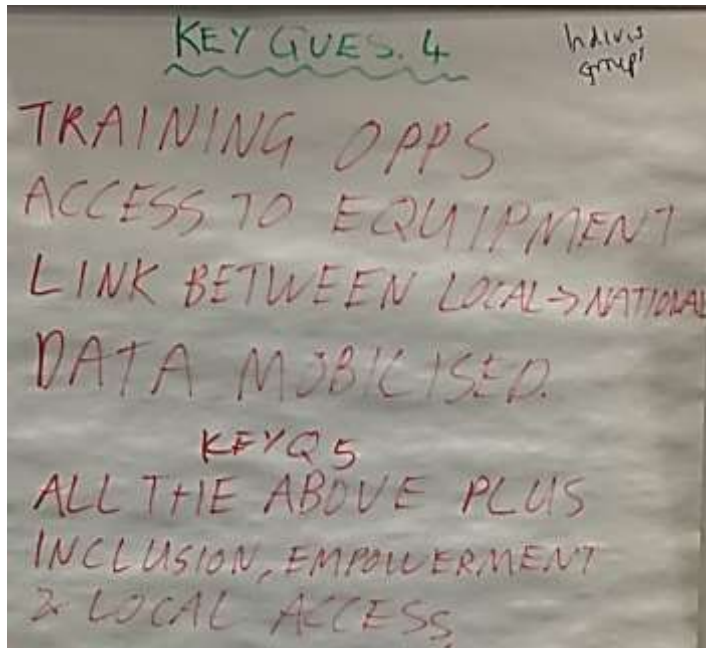 KEY QUES. 4
group'
TRAINING OPPS
ACCESS TO EQUIPMENT
LINK BETWEEN LOCAL -> NATIONAL
DATA MOBILISED.
KEY Q 5
ALL THE ABOVE PLUS
INCLUSION, EMPOWERMENT
& LOCAL ACCESS.